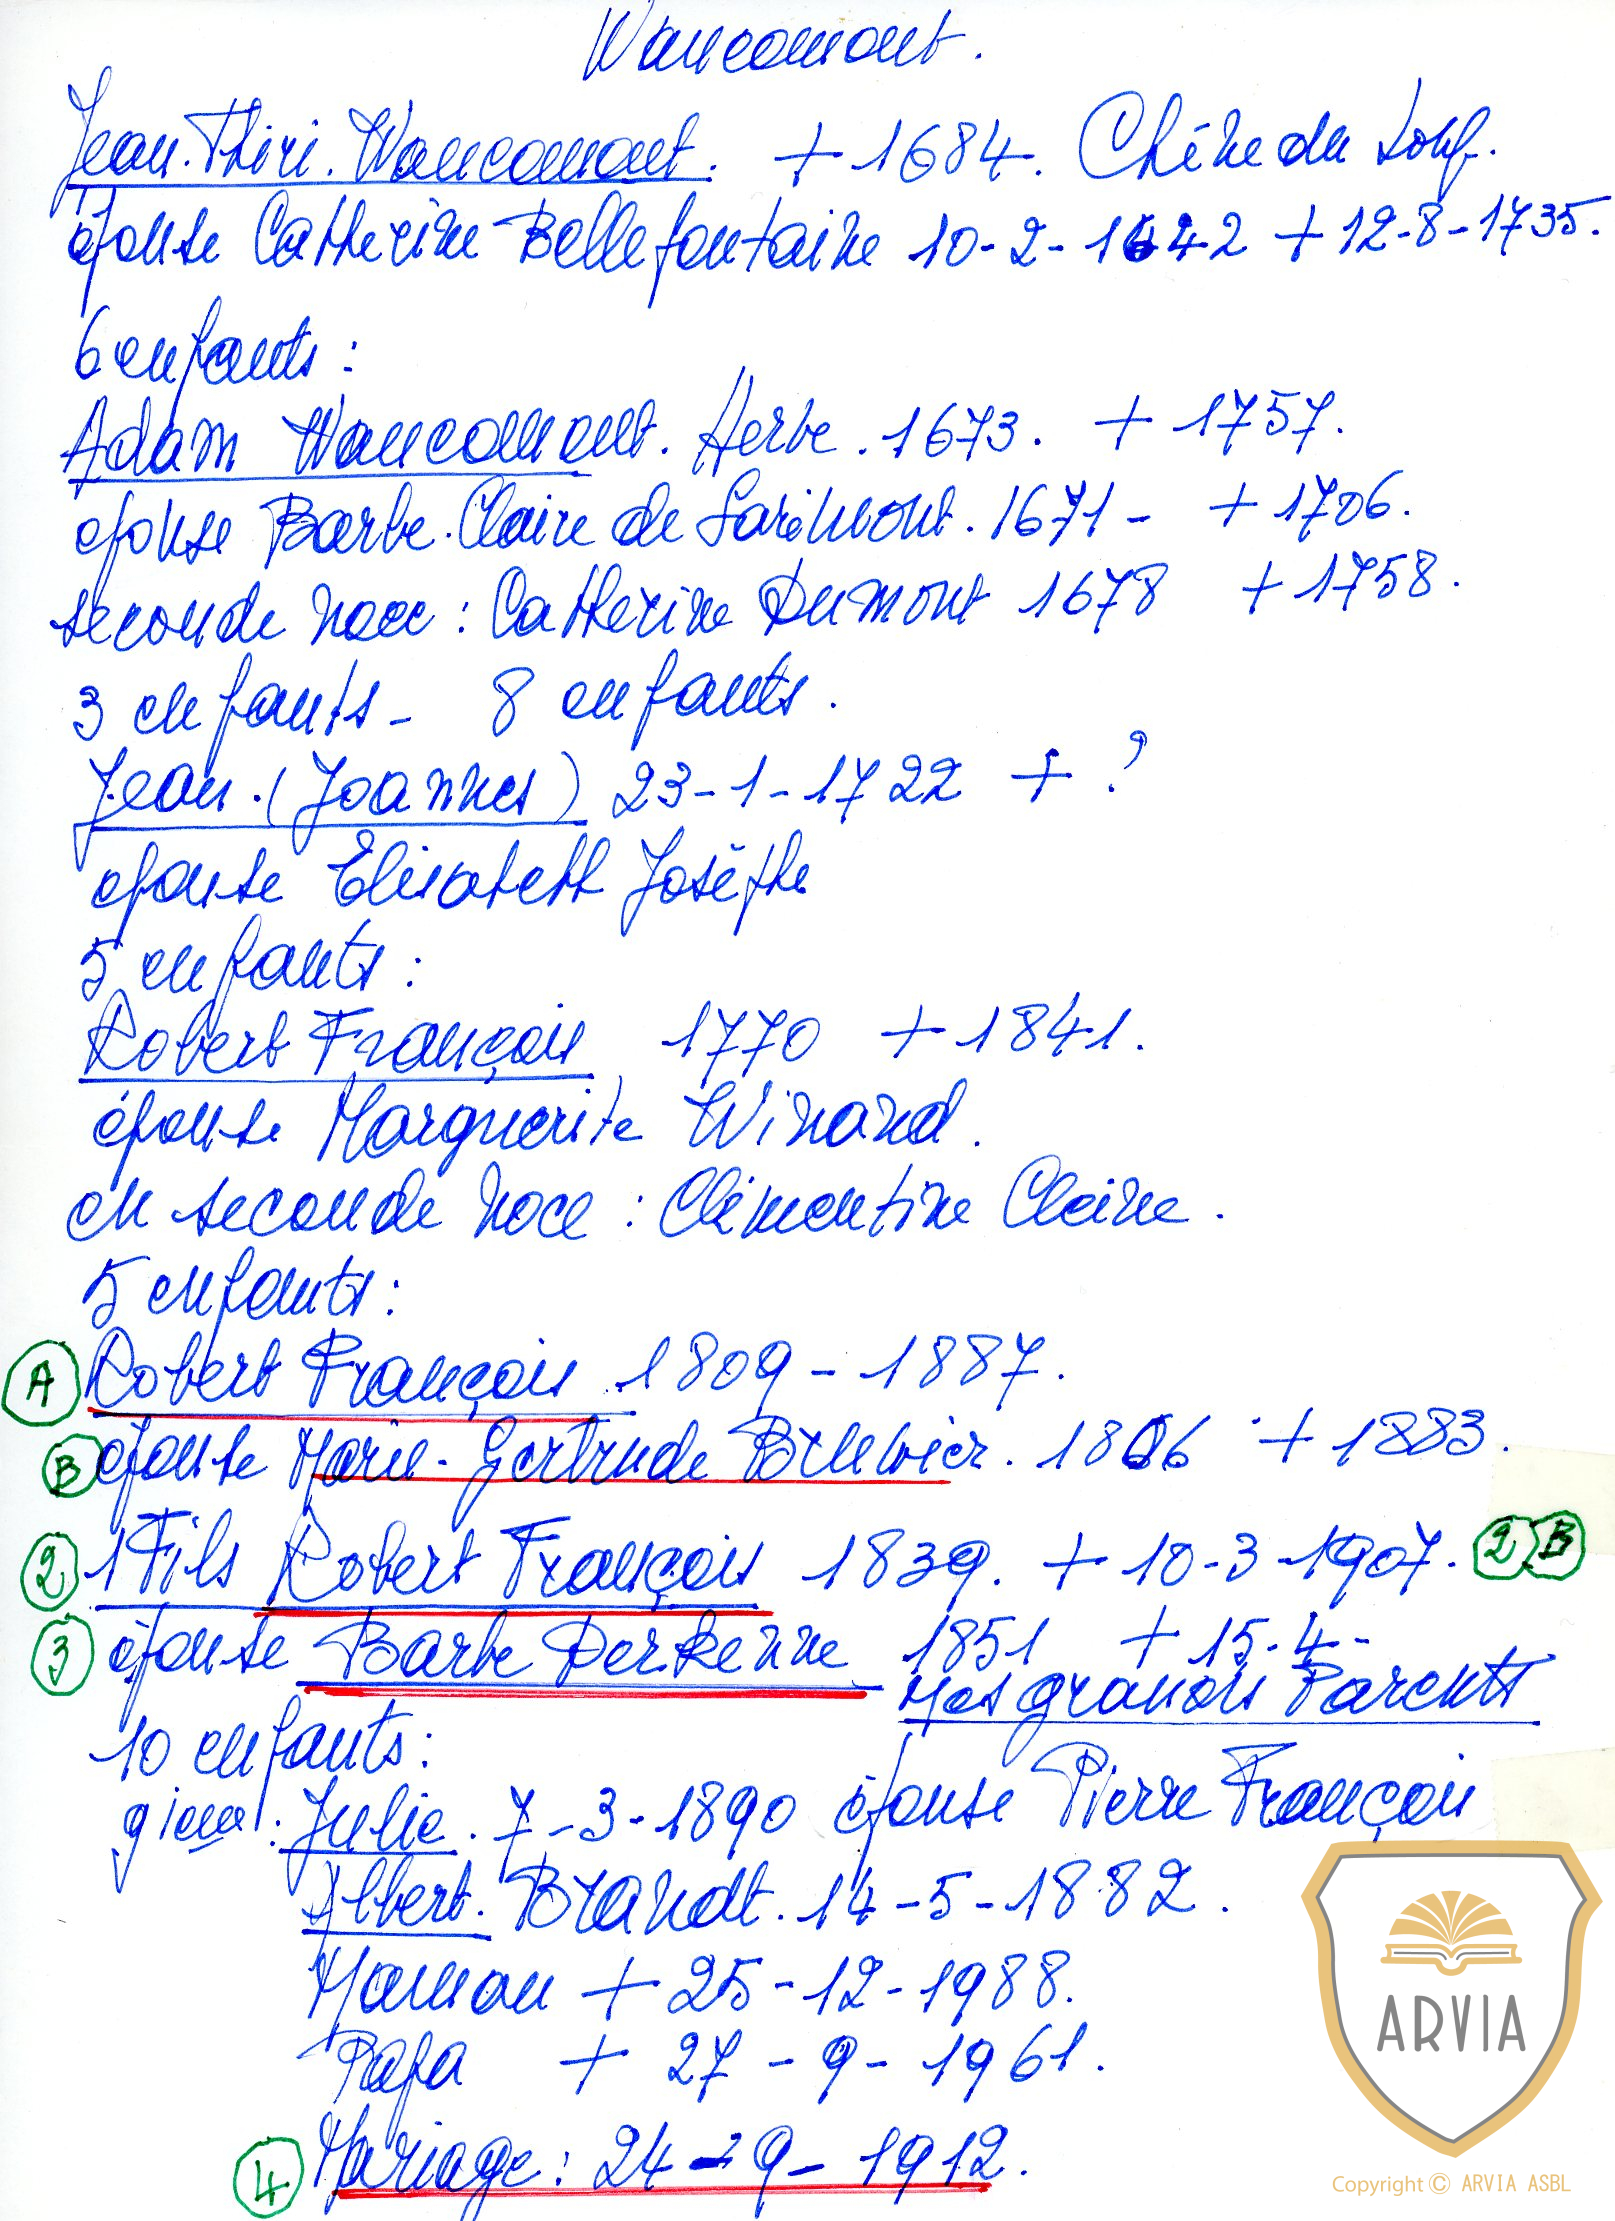 Wancomont.
Jean.Thiri.Wancomont. + 1684. Chêne du Louf.
épouse Catherine Bellefontaine 10-2-1642 + 12-8-1735.
6 enfants :
Adam Wancomont. Herve. 1673. + 1757.
épouse Barbe.Claire de Sarémont. 1671 - + 1706.
seconde noce : Catherine Dumont 1678 + 1758.
3 enfants - 8 enfants.
Jean.(Joannes) 23-1-1722 + ?
épouse Elisabeth Josèphe
5 enfants :
Robert François 1770 + 1841.
épouse Marguerite Winand.
en seconde noce : Clémentine Claine.
5 enfants :
A Robert François 1809 - 1887.
B épouse Marie-Gertrude Bruwier. 1806 + 1883.
2 1 Fils Robert François 1839. + 10-3-1907. 2 B
3 épouse Barbe Derkenne 1851 + 15-4-
Mes grands Parents
10 enfants :
9ieme : Julie. 7-3-1890 épouse Pierre François
Albert. Brandt. 14-5-1882.
Maman + 25-12-1988.
Papa + 27-9-1961.
4 Mariage : 24-9-1912.
ARVIA
Copyright © ARVIA ASBL